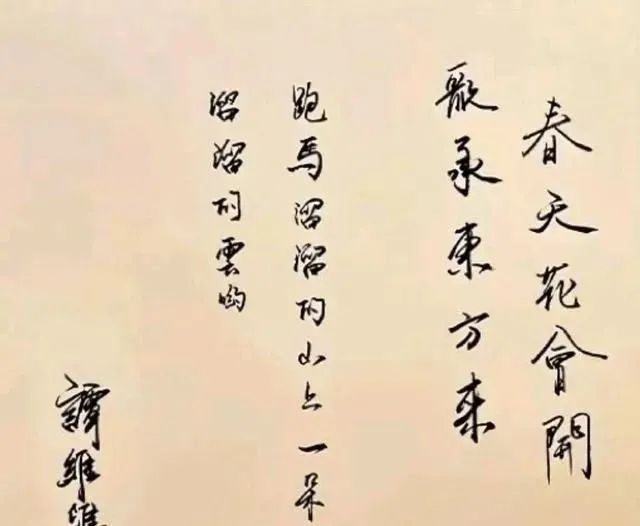 春天花會開
歌承東方來
跑馬溜溜的山上一朵
溜溜的雲喲
譚維維